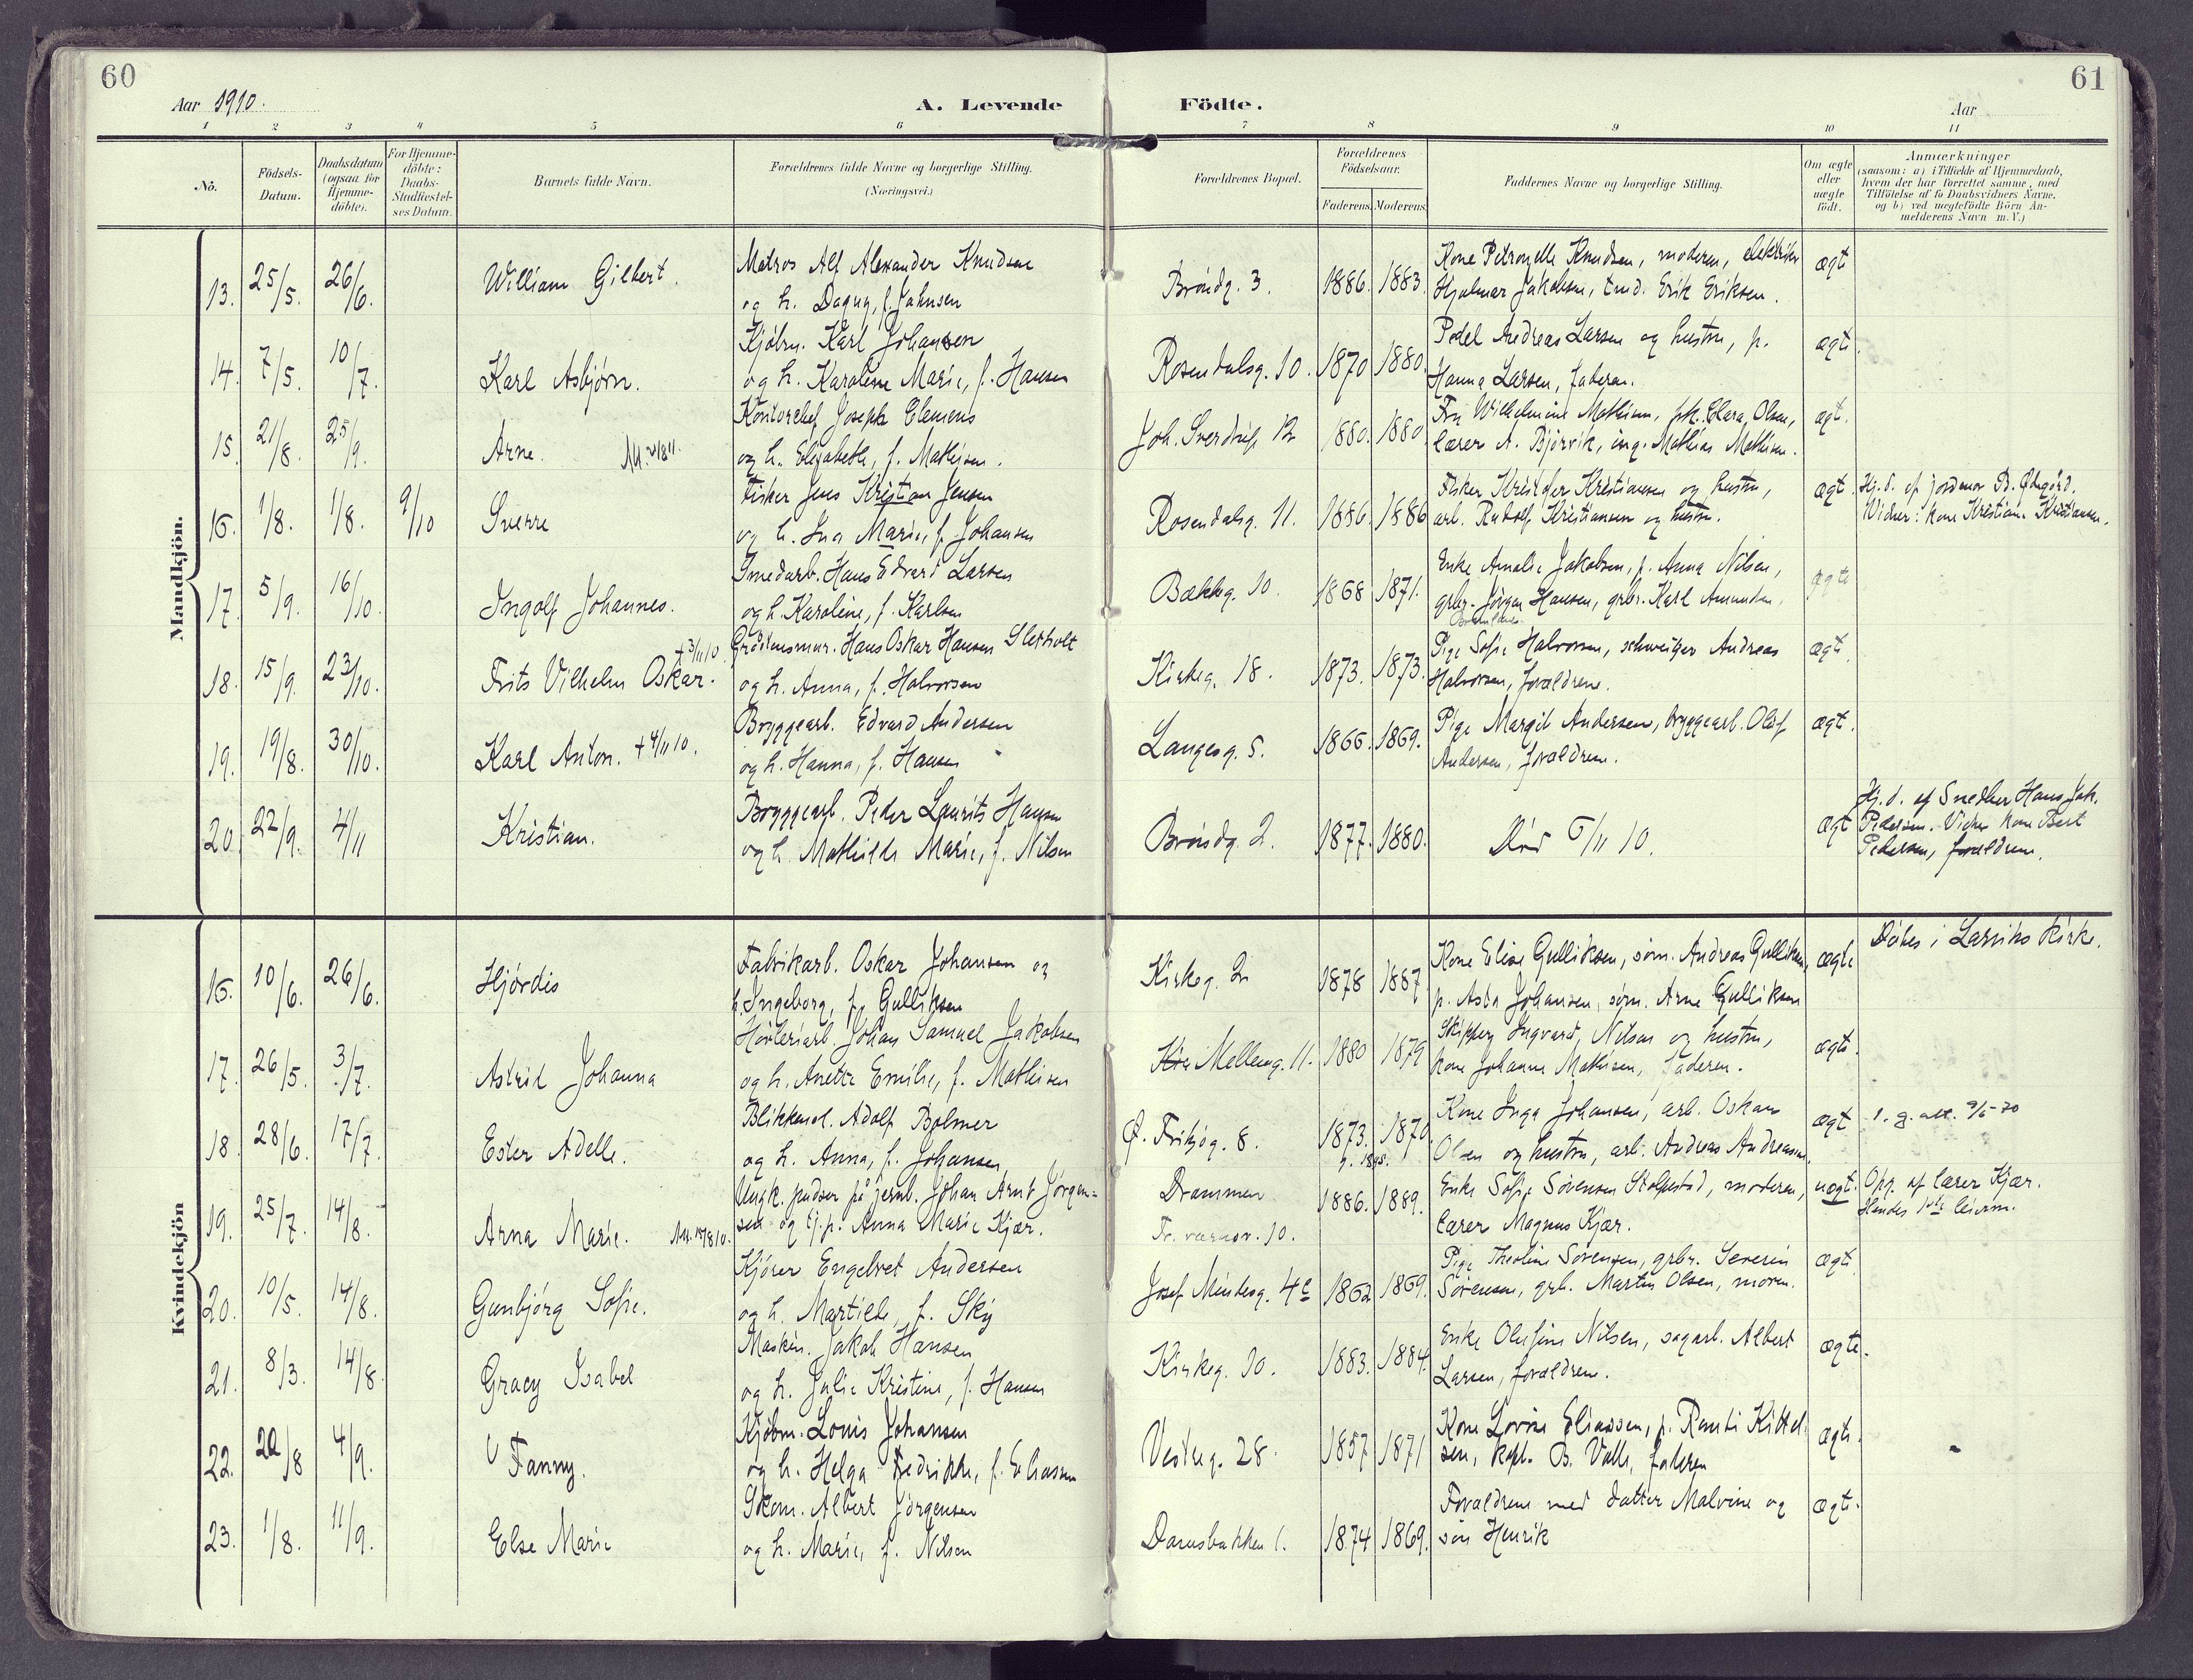 60
61
Aar 1910.
A. Levende
Födte.
Aar
1 2 3 4 5 6 7 8 9 10 11
No.
Födsels-Datum.
Daabsdatum (ogsaa for Hjemme-döbte).
For Hjemme-döbte: Daabs-Stadfæstel-ses Datum.
Barnets fulde Navn.
Forældrenes fulde Navne og borgerlige Stilling. (Næringsvei.)
Forældrenes Bopæl.
Forældrenes Födselsaar.
Faderens. Moderens.
Faddernes Navne og borgerlige Stilling.
Om ægte eller uægte födt.
Anmærkninger
(saasom: a) i Tilfælde af Hjemmedaab,
hvem der har forrettet samme, med
Tilföielse af to Daabsvidners Navne,
og b) ved uægtefödte Börn An-
melderens Navn m. V.)
Mandkjön.
13. 25/5. 26/6. William Gilbert.
Matros Alf Alexander Knudsen
og h. Dagny, f. Jahnsen
Bröndg. 3. 1886. 1883.
Kone Petronelle Knudsen, moderen, elektriker
Hjalmar Jakobsen, tml. Erik Eriksen.
ægte
14. 7/5. 10/7. Karl Asbjørn.
Kjöbm. Karl Johansen
og h. Karoline Marie, f. Hansen
Rosendalsg. 10. 1870 1880.
Pedel Andreas Larsen og hustru, p.
Hanna Larsen, faderen.
ægte.
15. 21/8. 25/9. Arne.
Kontorchef Joseph Clemens
og h. Elisabeth, f. Mathisen.
Joh. Sverdrup 12 1880. 1880
Fru Wilhelmine Mathisen, frk. Clara Olsen,
lærer A. Bjørvik, ing. Mathias Mathisen.
ægt.
16. 1/8. 1/8. 9/10 Sverre
Fisker Jens Kristian Jensen
og h. Ina Marie, f. Johansen
Rosendalsg. 11. 1886. 1886
Fisker Kristofer Kristiansen og hustru,
arb. Rudolf Kristiansen og hustru.
ægt.
Hj. d. af jordmor
Vidner: kone Kristiane Kristiansen.
17. 5/9. 16/10. Ingolf Johannes.
Smedarb. Hans Edvard Larsen
og h. Karoline, f. Karlsen
Bækkeg. 10. 1868 1871.
Enke Amalie Jakobsen, p. Anna Nilsen,
grbr. Jörgen Hansen, grbr. Karl Amundsen.
ægte
18. 15/9. 23/10. Frits Vilhelm Oskar. + 3/11 10.
Hans Oskar Hansen Sletholt
og h. Anna, f. Halvorsen
Kirkeg. 18. 1873. 1873.
Pige Sofie Halvorsen, schweitzer Andreas
Halvorsen, forældrene.
ægte.
19. 19/8. 30/10. Karl Anton. + 4/11 10.
Bryggearb. Edvard Andersen
og h. Hanna, f. Hansen
Langesg. 5. 1866. 1869.
Pige Margit Andersen, bryggearb. Olaf
Andersen, forældrene.
ægt.
20 22/9. 4/11 Kristian.
Bryggearb. Peder Laurits Hansen
og h. Mathilde Marie, f. Nilsen
Bröndg. 2. 1877. 1880.
Död 5/11 10.
ægt
Hj. d. af Snedker Hans Jak.
Pedersen. Vidner kone Bert
Pedersen, forældrene.
Kvindekjön
16. 10/6. 26/6. Hjördis
Fabrikarb. Oskar Johansen og
h. Ingeborg, f. Gulliksen
Kirkeg. 2 1878 1887
Kone Elise Gulliksen, söm. Andreas Gulliksen,
p. Asta Johansen, söm. Arne Gulliksen
ægte
Döbes i Larviks kirke.
17. 26/5. 3/7. Astrid Johanna
Høvleriarb. Johan Samuel Jakobsen
og h. Anette Emilie, f. Mathisen
Mellemg. 11. 1880 1879
Skipper Ingvard Nilsen og hustru,
kone Johanne Mathisen, faderen.
ægte.
18. 28/6. 17/7. Ester Adelle.
Blikkensl. Adolf Bolmer
og h. Anna, f. Johansen,
Ø. Fritzög. 8. 1873. 1870.
Kone Inga Johansen, arb. Oskar
Olsen og hustru, arb. Andreas Andreassen.
ægt
19. 25/7. 14/8. Arna Marie.
Ungk. pudser på jernb. Johan Arnt Jörgen-
sen og tj.p. Anna Marie Kjær.
Drammen 1886. 1889.
Enke Sofie Sörensen Stolpestad, moderen,
lærer Magnus Kjær.
uægt.
Opg. af lærer Kjær.
Hendes 1ste leierm.
20. 10/5. 14/8. Gunbjörg Sofie.
Kjörer Engebret Andersen
og h. Martiebe, f. Sky
Josef Mindesg. 4c 1862 1869.
Pige Theoline Sörensen, grbr. Severin
Sörensen, grb. Martin Olsen, moren.
ægte
21. 8/3. 14/8. Gracy Isabel
Maskin. Jakob Hansen
og h. Julie Kristine, f. Hansen
Kirkeg. 10. 1883. 1884.
Enke Olufine Nilsen, sagarb. Albert
Larsen, forældrene.
ægte.
22. 20/8 4/9. Fanny.
Kjöbm. Louis Johansen
og h. Helga Fredrikke, f. Eliassen
Vestreg. 28. 1857 1871
Kone Lovise Eliassen, p. Ranti Kittel-
sen, kapt. O. Valle, faderen
ægte.
23. 1/8. 11/9. Else Marie
Skom. Albert Jörgensen
og h. Marie, f. Nilsen
Damsbakken 1. 1874 1869.
Forældrene med datter Malvine og
sön Henrik
ægte.